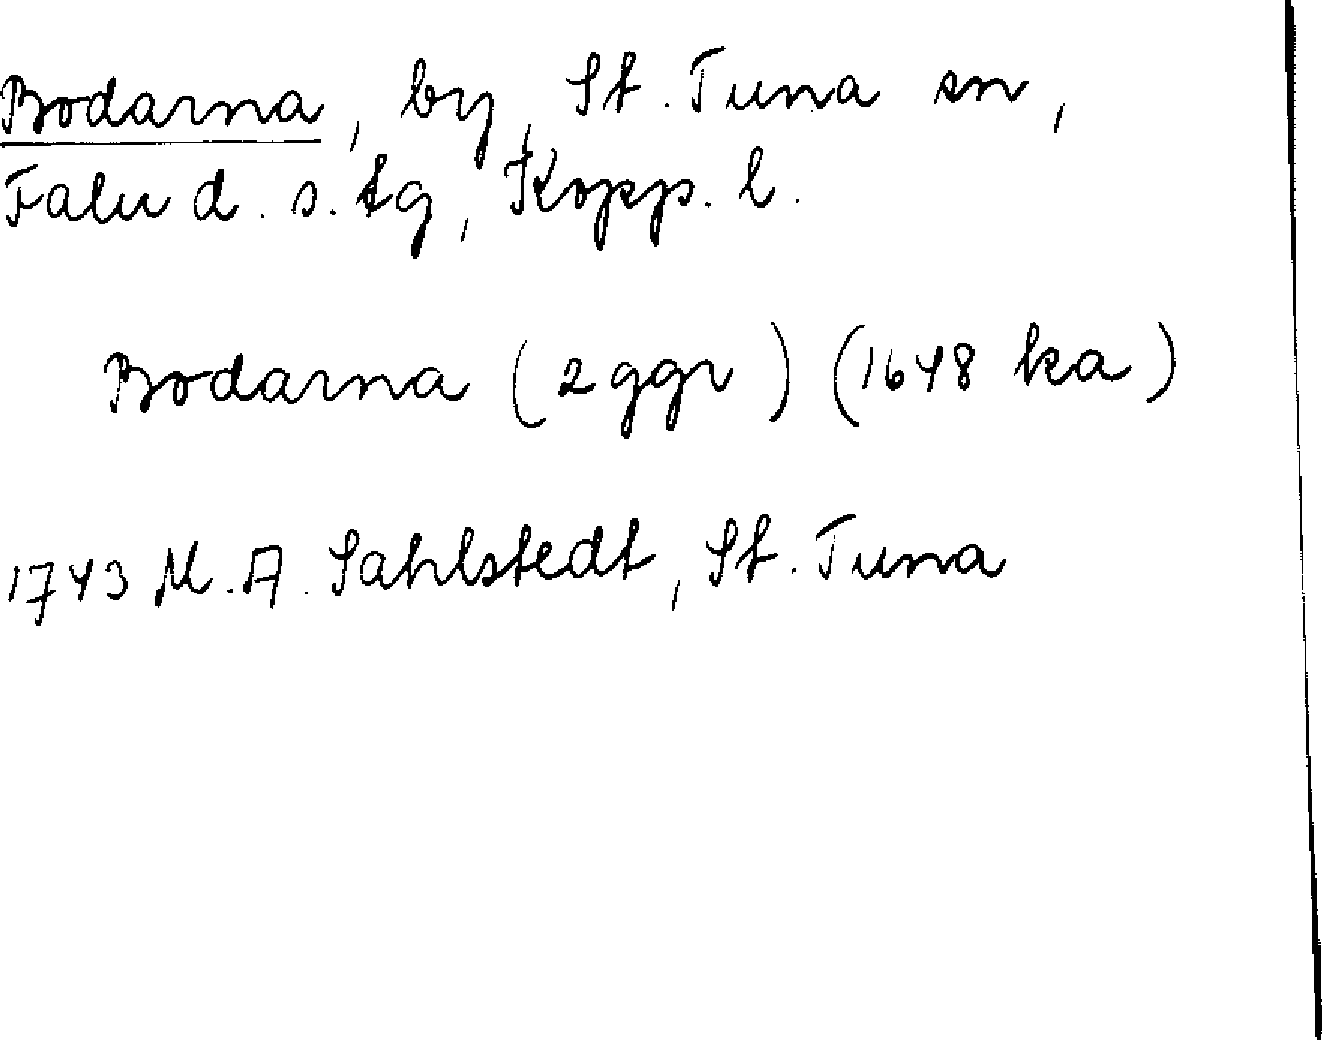 Bodarna, by, St. Tuna sn,
Falu d. s. tg, Kopp. l.
Bodarna (2 ggr) (1648 ka)
1743 M. A. Sahlstedt, St. Tuna